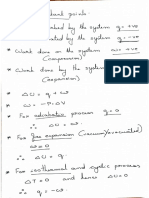 * Heat absorbed by the system q = +ve
* by the system q = -ve
* Work done on the system w = +ve
(compression)
* Work done by the system
(expansion)
* ΔU = q + w
* w = -P·ΔV
* For adiabatic process q = 0
∴ ΔU = w
* For free expansion (vacuum/evacuated)
w = 0
∴ ΔU = q
* For isothermal and cyclic process
ΔT = 0 and hence ΔU = 0
∴ q = -w.